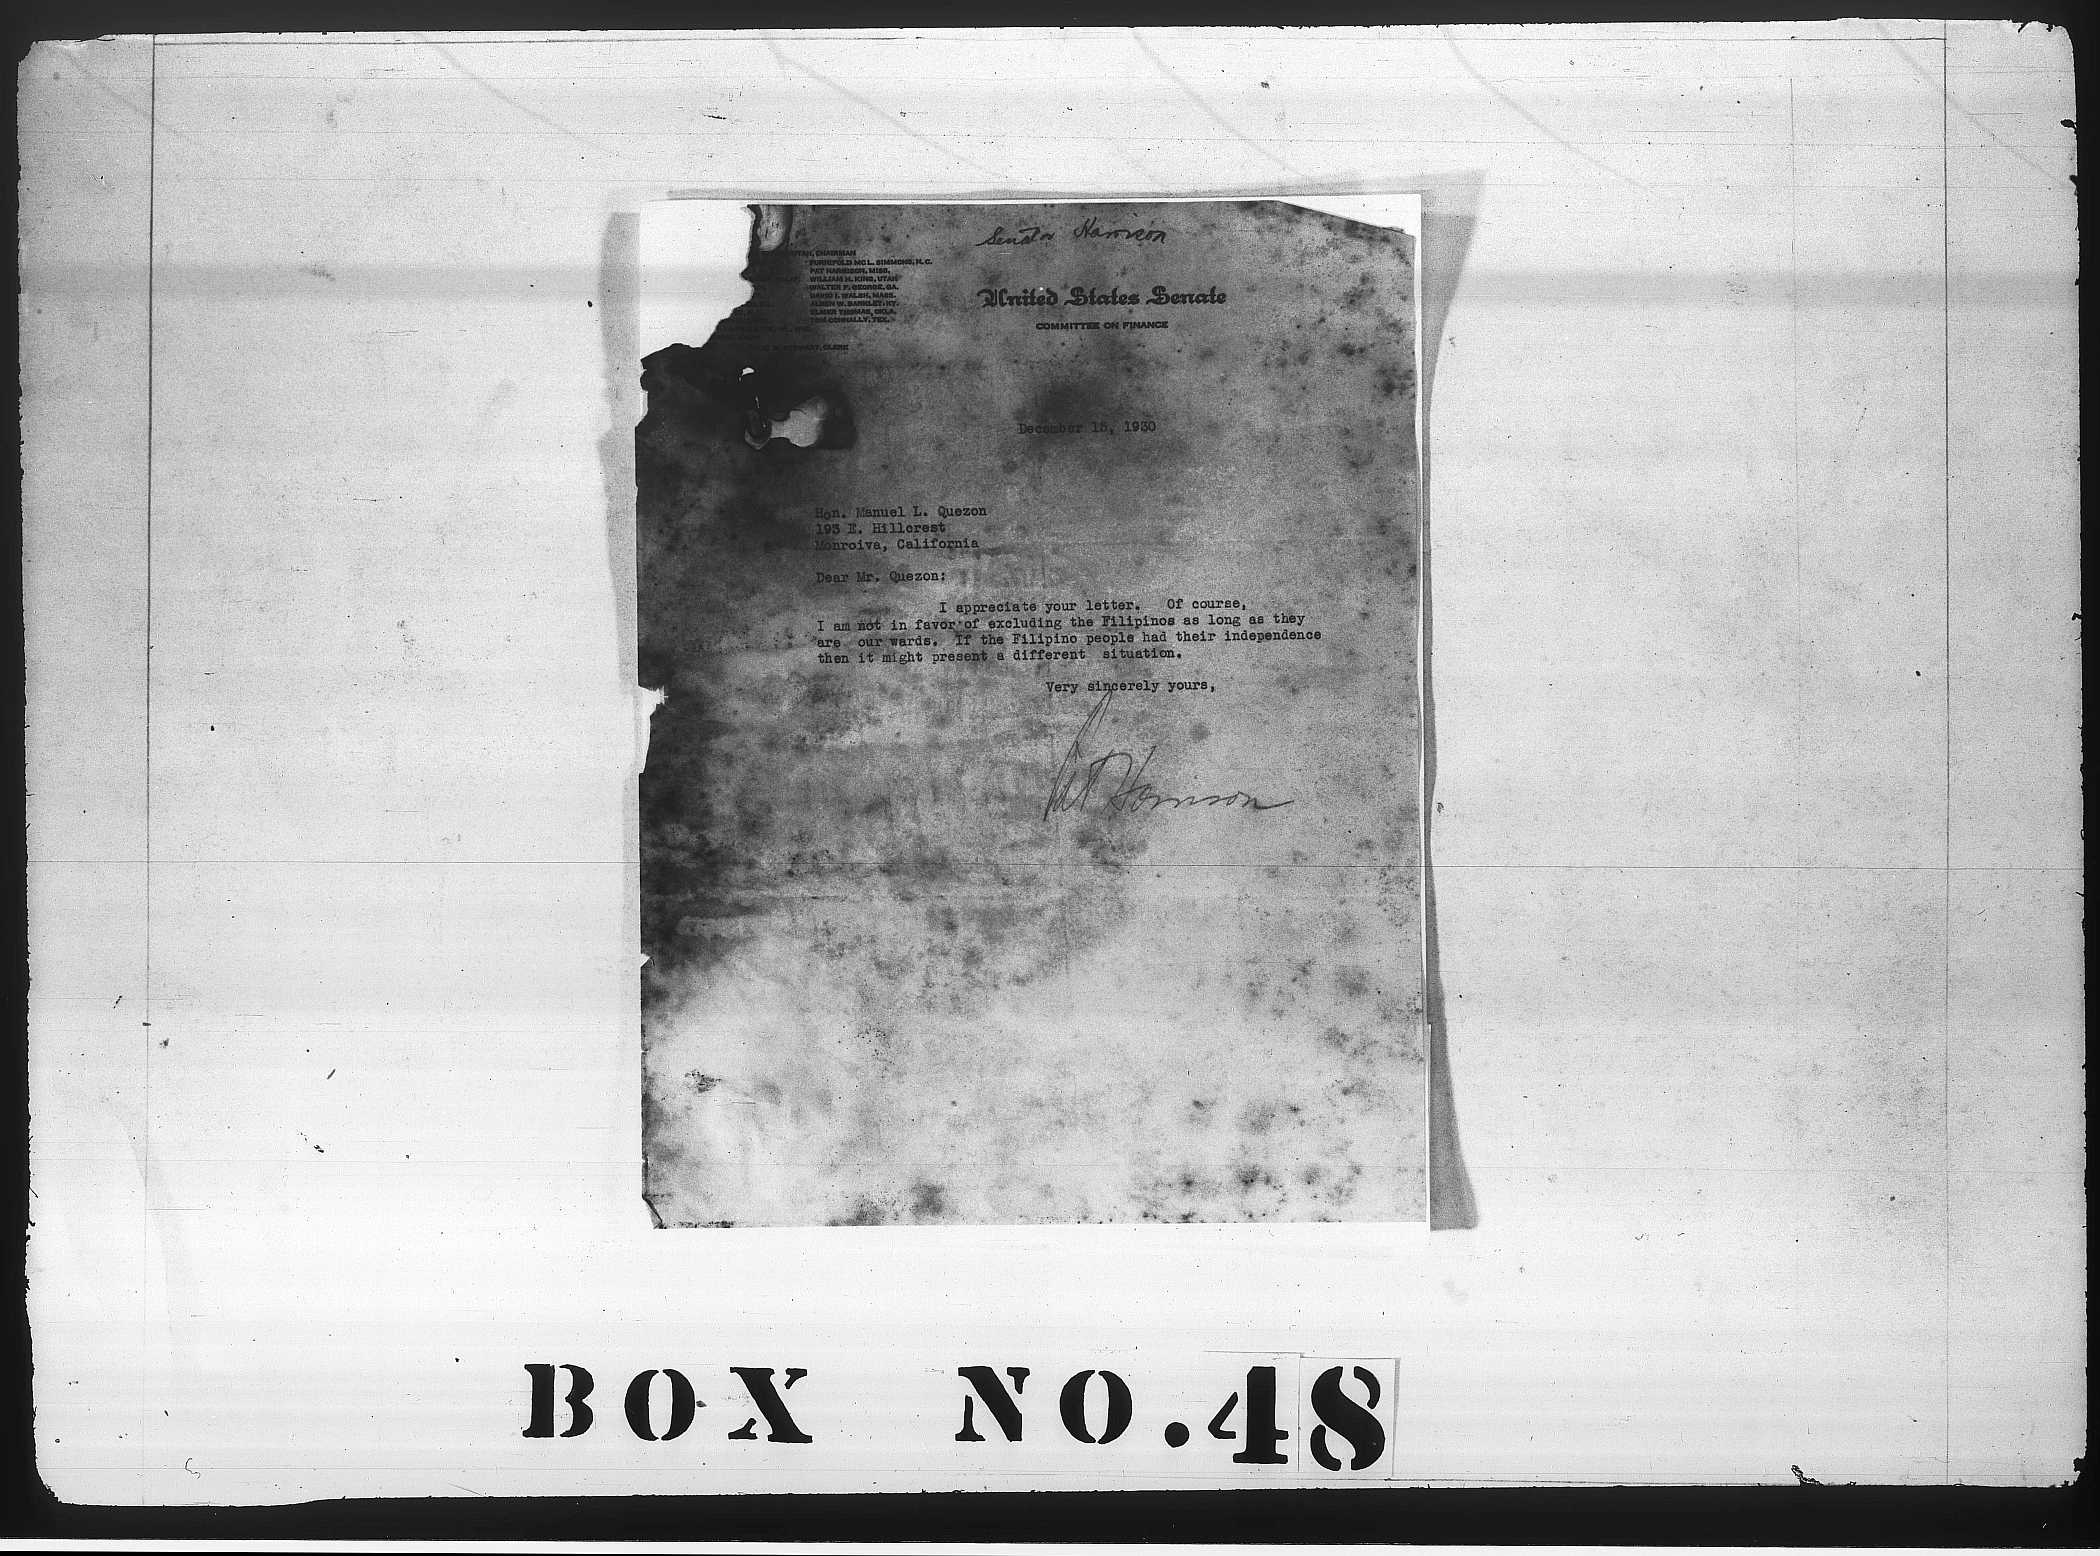 Senator Harrison
UTAH, CHAIRMAN
FURNIFOLD MC L. SIMMONS, N. C.
PAT HARRISON, MISS.
WILLIAM H. KING, UTAH
WALTER F. GEORGE, GA.
DAVID I. WALSH, MASS.
ALBEN W. BARKLEY, KY.
ELMER THOMAS, OKLA.
TOM CONNALLY, TEX.
CLERK
United States Senate
COMMITTEE ON FINANCE
December 15, 1930
Hon. Manuel L. Quezon
193 E. Hillcrest
Monroiva, California
Dear Mr. Quezon:
I appreciate your letter. Of course,
I am not in favor of excluding the Filipinos as long as they
are our wards. If the Filipino people had their independence
then it might present a different situation.
Very sincerely yours,
Pat Harrison
BOX NO. 48